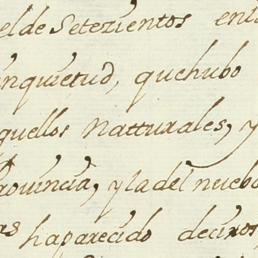 el de Setezientos en
inquietud, que hubo
quellos natturales, y
Provincia, y la del nuebo
has aparecido deciros